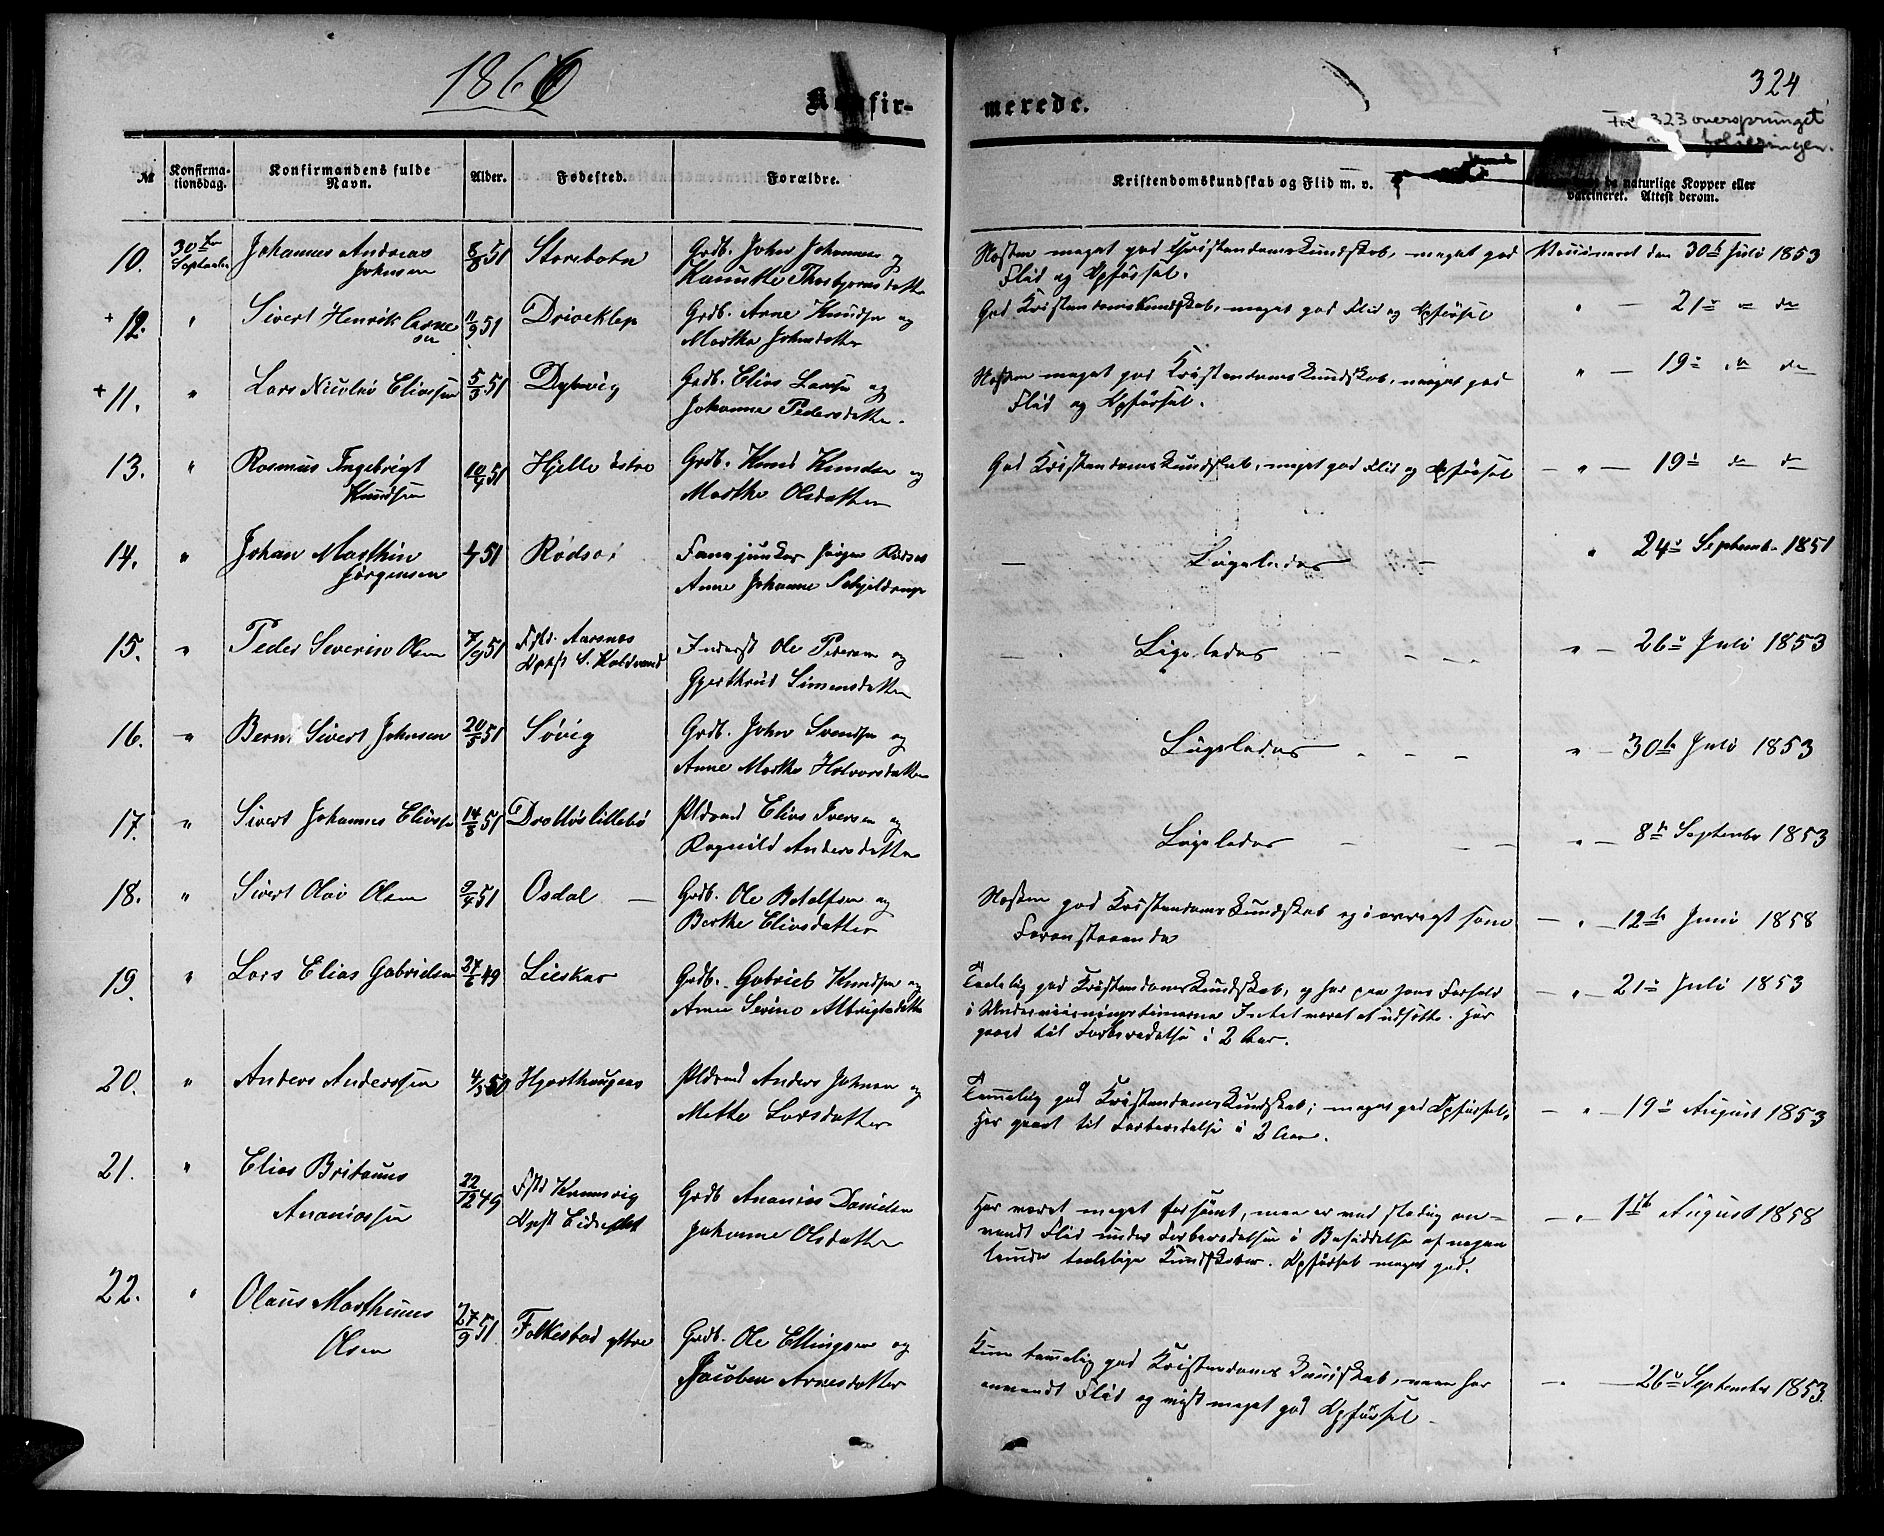 1866
Konfir-
merede.
324
Fol 323 oversprunget
ved folieringen.
№
Konfirma-
tionsdag.
Konfirmandens fulde
Navn.
Alder.
Fødested.
Forældre.
Kristendomskundskab og Flid m. v.
naturlige Kopper eller
vaccineret. Attest derom.
10. 30te September Johannes Andreas Johnsen 8/8 51 Storebotn Grdb. John Johannesen og
Næsten meget god Christendomskundskab, meget god Flid og Opførsel. Vaccineret den 30te Juli 1853
+ 12. " Sivert Henrik Arnesen 11/9 51 Driveklep Grdb. Arne Knudsen og
Marthe Johnsdatter
God Kristendomskundskab, meget god Flid og Opførsel " — 21de do do
+ 11. " Lars Nicolai Eliassen 5/3 51 Dybvig Grdb. Elias Larsen og
Johanne Pedersdatter.
Næsten meget god Kristendomskundskab, meget god
Flid og Opførsel. " — 19de do do
13. " Rasmus Ingebrigt Knudsen 51 Hjelle østre Grdb. Knud Knudsen og
Marthe Olsdatter
God Kristendomskundskab, meget god Flid og Opførsel — " — 19de do do
14. " Johan Marthin Jørgensen 51 Rødsæt Fanejunker Jørgen
Anne Johanne Schjeldrup
— Ligeledes — " 24de September 1851
15. " Peder Severin Olsen 7/9 51 Fstd. Aarsnes
Opfst S. Koldevand Inderst Ole Pedersen og
Gjerthrud Simensdatter
— Ligeledes — — — " — 26de Juli 1853
16. " Bernt Sivert Johnsen 20/5 51 Søvig Grdb. John Svendsen og
Anne Marthe Halvorsdatter
Ligeledes — — — " — 30te Juli 1853
17. " Sivert Johannes Eliassen 14/8 51 Pldsmd Elias Iversen og
Ragnild Andersdatter
Ligeledes — — — " — 8de September 1853
18. " Sivert Olai Olsen 9/4 51 Osdal — Grdb. Ole Botolfsen og
Berthe Eliasdatter
Næsten god Kristendomskundskab og i øvrigt som
Foranstaaende — " — 12te Juni 1858
19. " Lars Elias Gabrielsen 27/6 49 Lieskar Grdb. Gabriel Knudsen og
Anne Serine Albrigtsdatter
Taalelig god Kristendomskundskab, og har paa hans Forhold
i Undervisningstimerne Intet været at udsætte. Har
gaaet til Forberedelse i 2 Aar. — " — 21de Juli 1853
20. " Anders Anderssen 4/5 50 Hjorthaugens Pldsmd Anders Johnsen og
Mette Larsdatter
Temmelig god Kristendomskundskab; meget god Opførsel,
Har gaaet til Forberedelse i 2 Aar. — " — 19de August 1853
21. " Elias Britanus
Ananiassen 22/12 49 Fstd Kramsvig
Opfst Eidsedet Grdb Ananias Danielsen
Johanne Olsdatter
Har været meget forsømt, men er ved stadig an-
vendt Flid under Forberedelsen i Besiddelse af nogen-
lunde taalelige Kundskaber. Opførsel meget god. — " — 11te August 1858
22. " Olaus Marthinus
Olsen 27/9 51 Folkestad yttre Grdb. Ole Ellingsen og
Jacobea Arnesdatter
Kun temmelig god Kristendomskundskab, men har
anvendt Flid og viist meget god Opførsel. — " — 26de September 1853.